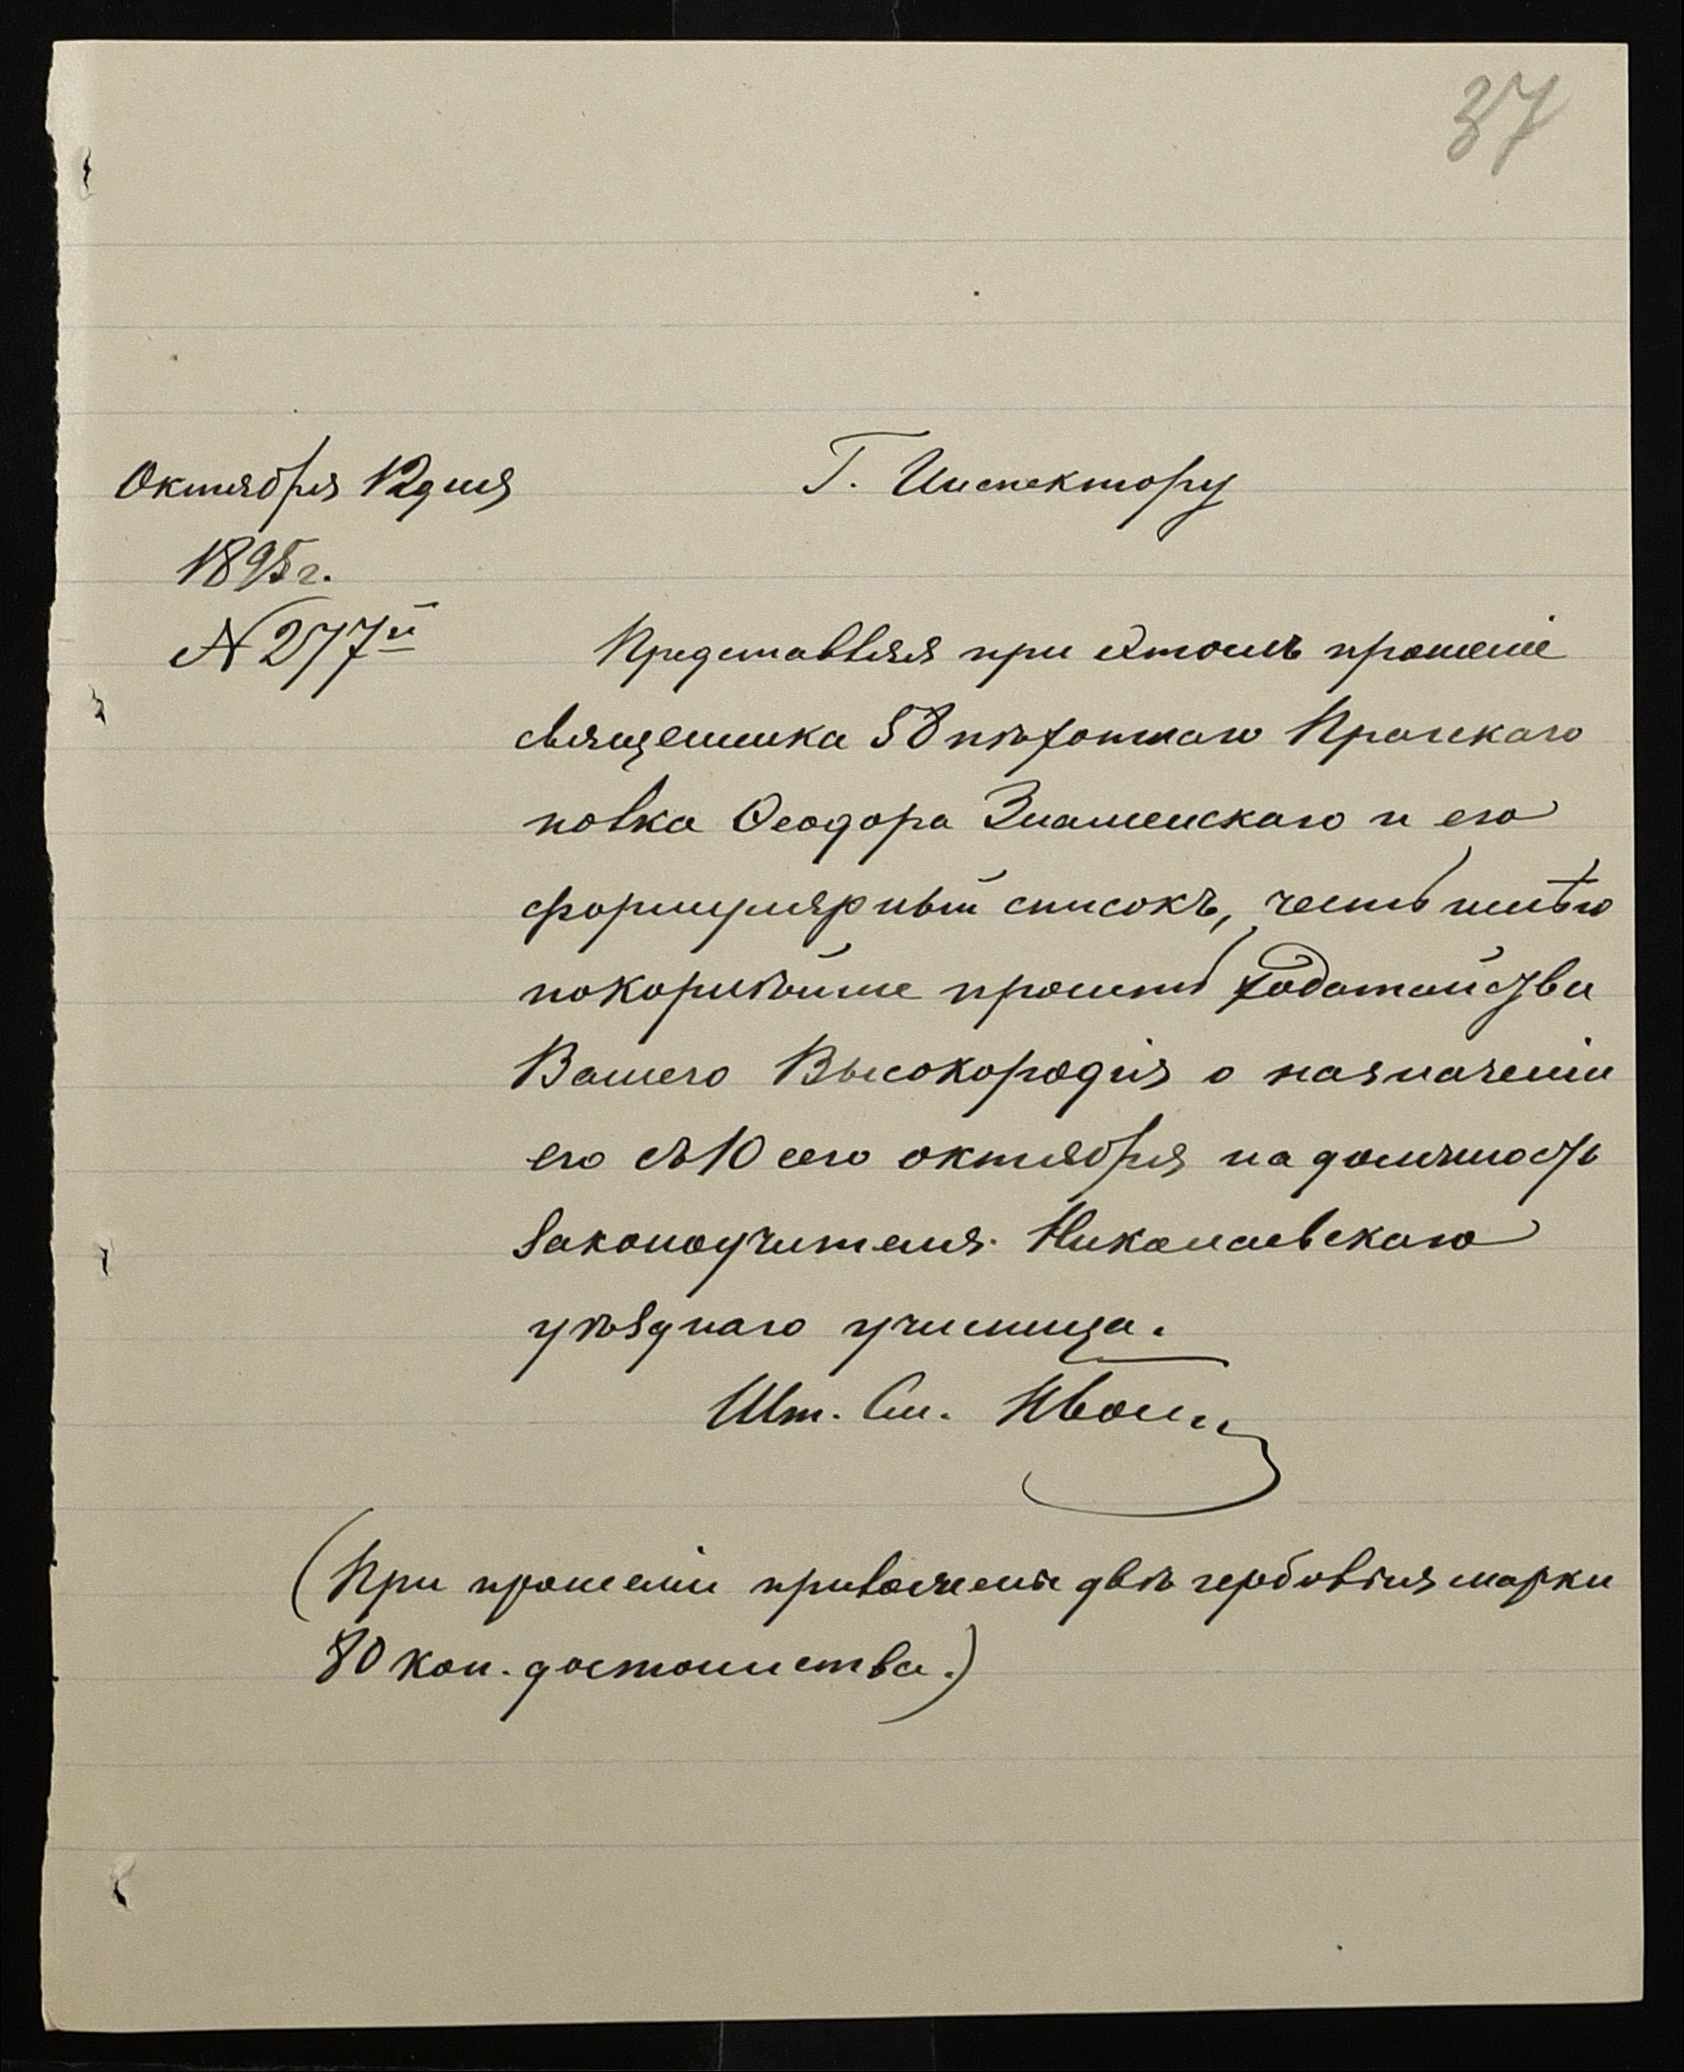 37
Октября 12 дня
1895 г.
№ 277й
Г. Инспектору
Представляя при этомъ прошеніе
священника 58 пѣхотнаго Прагскаго
полка Ѳеодора Знаменскаго и его
формулярный списокъ, честь имѣю
покорнѣйше просить ходатайства
Вашего Высокородія о назначеніи
его съ 10 сего октября на должность
законоучителя Николаевскаго
уѣзднаго училища.
Шт. См.
(При прошеніи приложены двѣ гербовыя марки
80 коп. достоинства.)